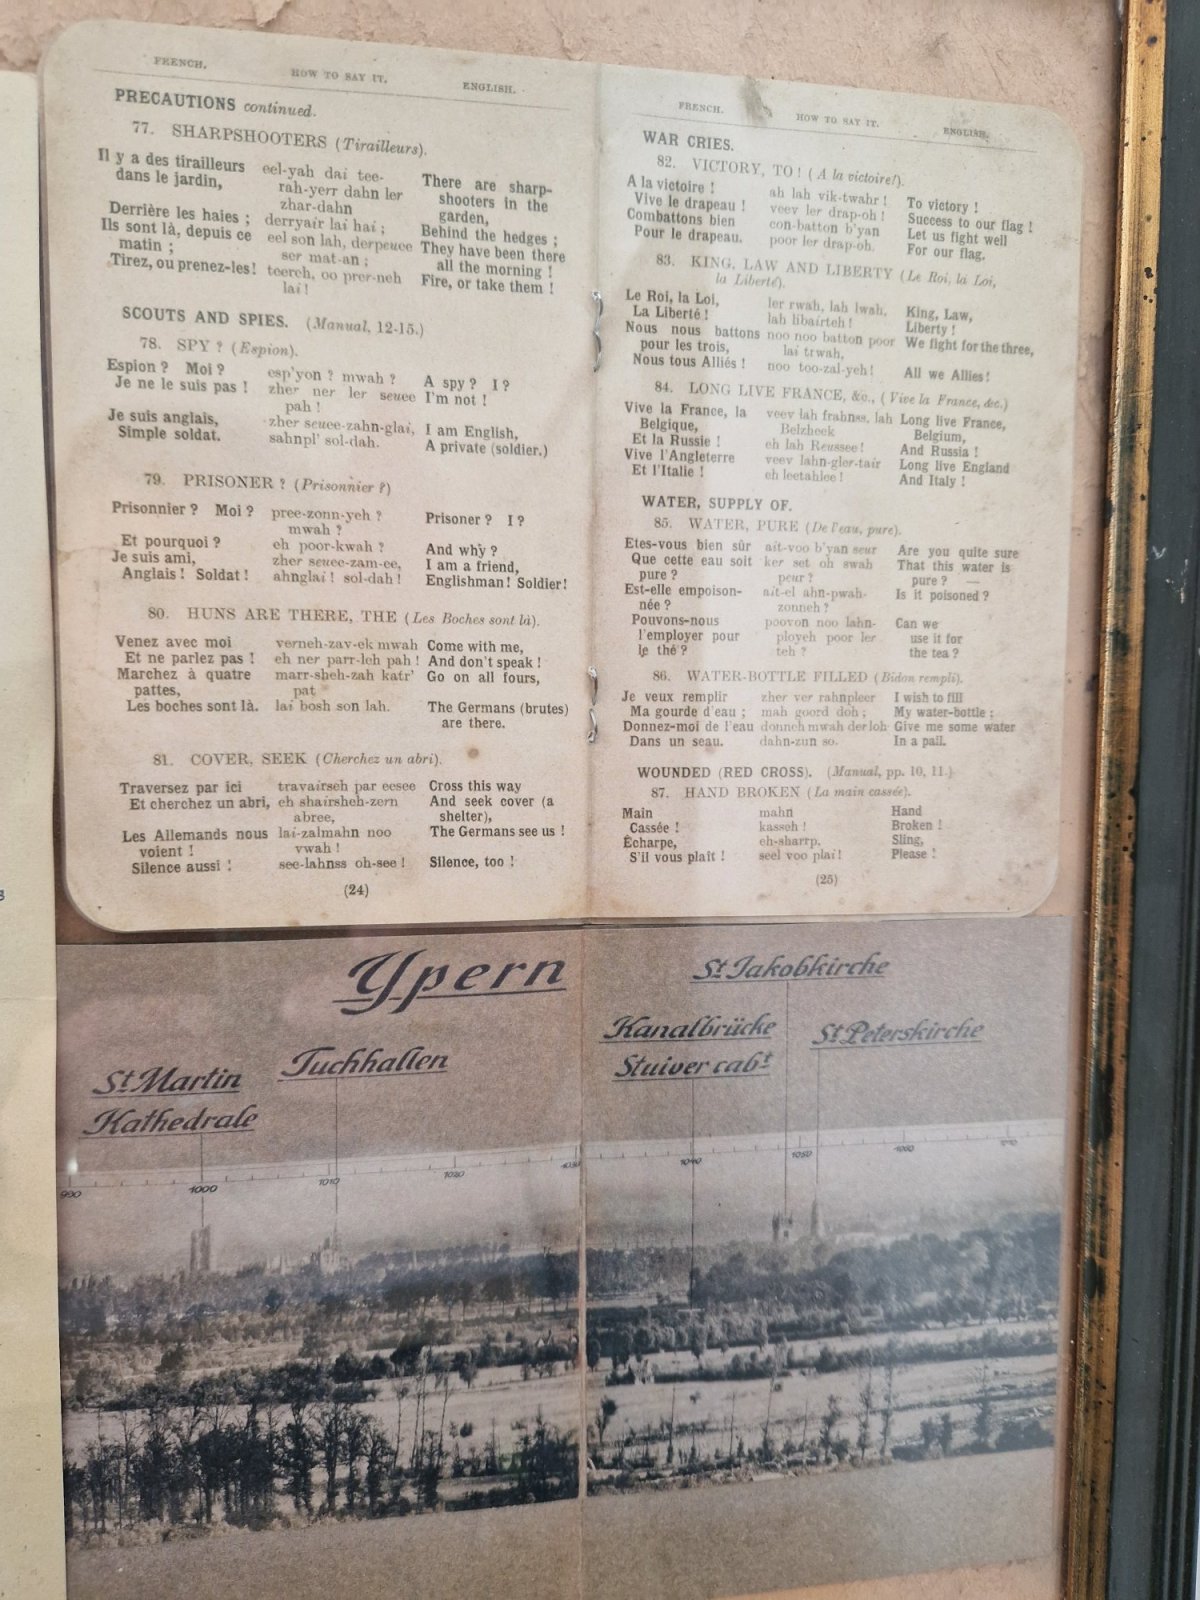 FRENCH. HOW TO SAY IT. ENGLISH.
PRECAUTIONS continued.
77. SHARPSHOOTERS (Tirailleurs).
Il y a des tirailleurs eel-yah dai tee- There are sharp-
dans le jardin, rah-yerr dahn ler shooters in the
zhar-dahn garden,
Derrière les haies ; derryair lai hai ; Behind the hedges ;
Ils sont là, depuis ce eel son lah, derpeuce They have been there
matin ; ser mat-an ; all the morning !
Tirez, ou prenez-les! teereh, oo prer-neh Fire, or take them !
lai !
SCOUTS AND SPIES. (Manual, 12-15.)
78. SPY ? (Espion).
Espion ? Moi ? esp'yon ? mwah ? A spy ? I ?
Je ne le suis pas ! zher ner ler seuee I'm not !
pah !
Je suis anglais, zher seuee-zahn-glai, I am English,
Simple soldat. sahnpl' sol-dah. A private (soldier.)
79. PRISONER ? (Prisonnier ?)
Prisonnier ? Moi ? pree-zonn-yeh ? Prisoner ? I ?
mwah ?
Et pourquoi ? eh poor-kwah ? And why ?
Je suis ami, zher seuee-zam-ee, I am a friend,
Anglais ! Soldat ! ahnglai ! sol-dah ! Englishman ! Soldier!
80. HUNS ARE THERE, THE (Les Boches sont là).
Venez avec moi verneh-zav-ek mwah Come with me,
Et ne parlez pas ! eh ner parr-leh pah ! And don't speak !
Marchez à quatre marr-sheh-zah katr' Go on all fours,
pattes, pat
Les boches sont là. lai bosh son lah. The Germans (brutes)
are there.
81. COVER, SEEK (Cherchez un abri).
Traversez par ici travairseh par eesee Cross this way
Et cherchez un abri, eh shairsheh-zern And seek cover (a
abree, shelter),
Les Allemands nous lai-zalmahn noo The Germans see us !
voient ! vwah !
Silence aussi ! see-lahnss oh-see ! Silence, too !
(24)
FRENCH. HOW TO SAY IT. ENGLISH.
WAR CRIES.
82. VICTORY, TO ! (A la victoire!).
A la victoire ! ah lah vik-twahr ! To victory !
Vive le drapeau ! veev ler drap-oh ! Success to our flag !
Combattons bien con-batton b'yan Let us fight well
Pour le drapeau. poor ler drap-oh. For our flag.
83. KING, LAW AND LIBERTY (Le Roi, la Loi,
la Liberté).
Le Roi, la Loi, ler rwah, lah lwah, King, Law,
La Liberté ! lah libairteh ! Liberty !
Nous nous battons noo noo batton poor We fight for the three,
pour les trois, lai trwah,
Nous tous Alliés ! noo too-zal-yeh ! All we Allies !
84. LONG LIVE FRANCE, &c., (Vive la France, &c.)
Vive la France, la veev lah frahnss, lah Long live France,
Belgique, Belzheek Belgium,
Et la Russie ! eh lah Reussee ! And Russia !
Vive l'Angleterre veev lahn-gler-tair Long live England
Et l'Italie ! eh leetahlee ! And Italy !
WATER, SUPPLY OF.
85. WATER, PURE (De l'eau, pure).
Etes-vous bien sûr ait-voo b'yan seur Are you quite sure
Que cette eau soit ker set oh swah That this water is
pure ? peur ? pure ?
Est-elle empoison- ait-el ahn-pwah- Is it poisoned ?
née ? zonneh ?
Pouvons-nous poovon noo lahn- Can we
l'employer pour ployeh poor ler use it for
le thé ? teh ? the tea ?
86. WATER-BOTTLE FILLED (Bidon rempli).
Je veux remplir zher ver rahnpleer I wish to fill
Ma gourde d'eau ; mah goord doh ; My water-bottle ;
Donnez-moi de l'eau donneh mwah der loh Give me some water
Dans un seau. dahn-zun so. In a pail.
WOUNDED (RED CROSS). (Manual, pp. 10, 11.)
87. HAND BROKEN (La main cassée).
Main mahn Hand
Cassée ! kasseh ! Broken !
Écharpe, eh-sharrp, Sling,
S'il vous plaît ! seel voo plai ! Please !
(25)
Ypern
St Martin
Kathedrale
Tuchhallen
Kanalbrücke
Stuiver cabt
St Jakobkirche
St Peterskirche
990 1000 1010 1020 1030 1040 1050 1060